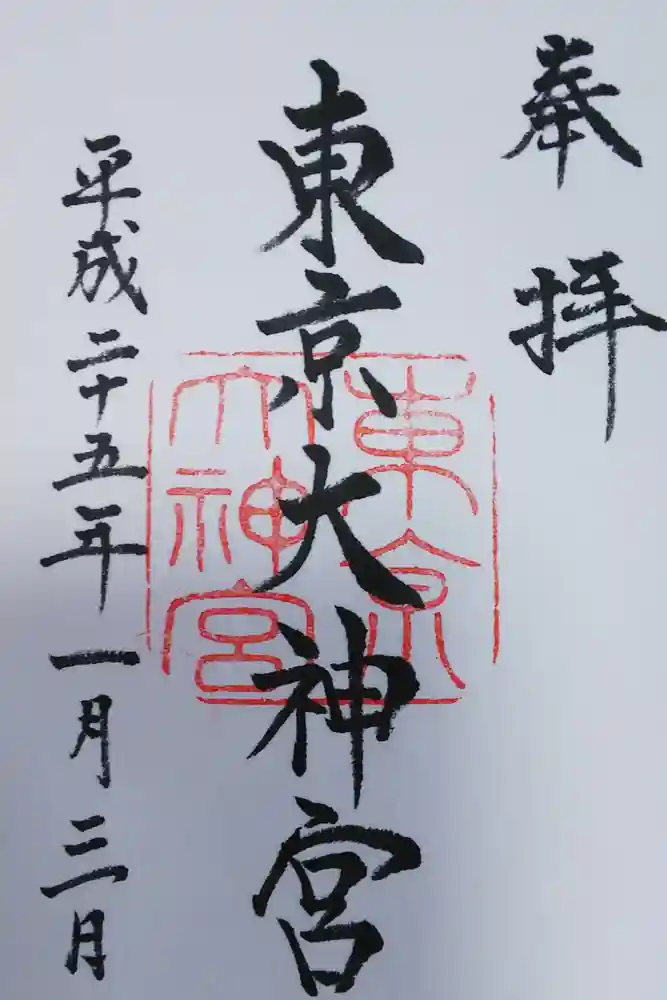 奉拝
東京大神宮
東京
大神宮
平成二十五年一月三月